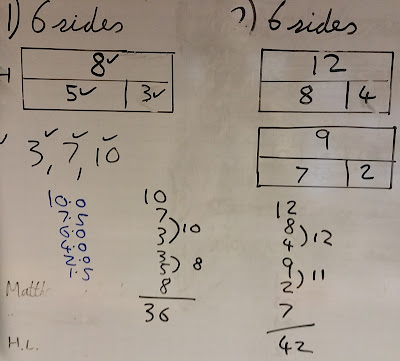 1) 6 sides
8✓
5✓ 3✓
3✓, 7✓, 10✓
10.0
7.5
6.0
4.0
2.0
1.5
10
7
3 ) 10
3
5 ) 8
8
36
H.L.
2) 6 sides
12
8 4
9
7 2
12
8
4 ) 12
9
2 ) 11
7
42